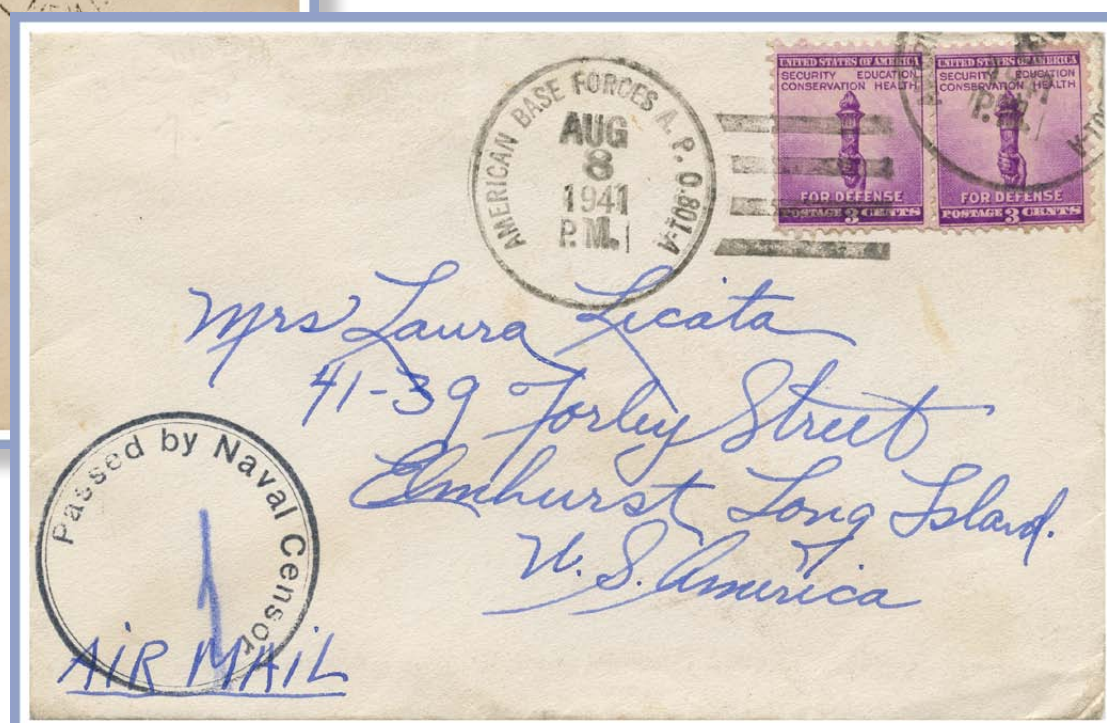 AMERICAN BASE FORCES A.P.O.801-A
AUG
8
1941
P.M.
UNITED STATES OF AMERICA
SECURITY EDUCATION
CONSERVATION HEALTH
FOR DEFENSE
POSTAGE 3 CENTS
UNITED STATES OF AMERICA
SECURITY EDUCATION
CONSERVATION HEALTH
FOR DEFENSE
POSTAGE 3 CENTS
P.M.
Mrs Laura Licata
41-39 Forley Street
Elmhurst Long Island.
U. S. America
Passed by Naval Censor
AIR MAIL